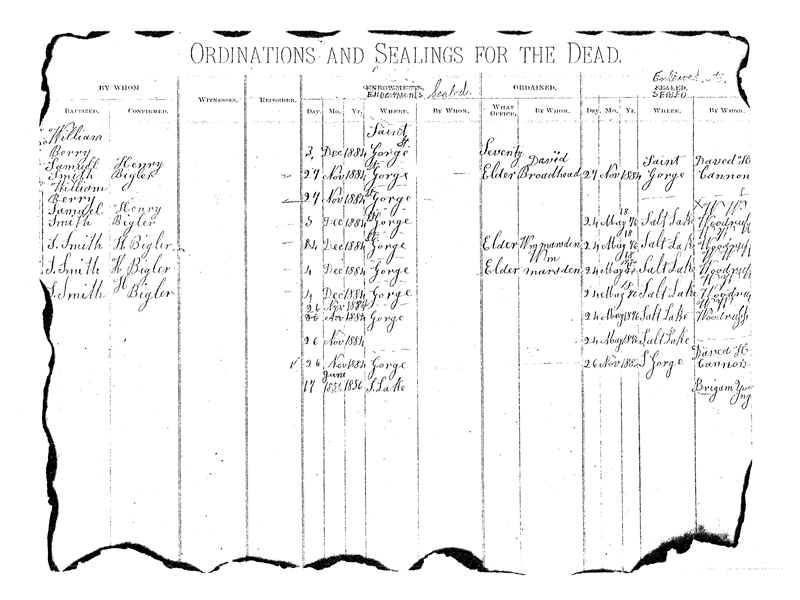 ORDINATIONS AND SEALINGS FOR THE DEAD.
BY WHOM ENDOWMENTS, Sealed. ORDAINED. SEALED.
ENDOWMENTS SEALED
BAPTIZED. CONFIRMED. WITNESSES. RECORDER. DAY. MO. YR. WHERE. BY WHOM. WHAT OFFICE. BY WHOM. DAY. MO. YR. WHERE. BY WHOM.
William Saint
Berry 3 Dec 1884 Gorge Seventy
Samuel Henry St David Saint David H
Smith Bigler 27 Nov 1884 Gorge Elder Broadhead 27 Nov 1884 Gorge Cannon
William
Berry 27 Nov 1884 Gorge
Samuel Henry St 18
Smith Bigler 3 Dec 1884 Gorge 24 May 76 Salt Lake Woodruff
S. Smith H Bigler. Dec 1884 Gorge Elder Wm marsden 24 May 76 Salt Lake Woodruff
Wm
S. Smith H Bigler 4 Dec 1884 Gorge Elder marsden 24 May Salt Lake Woodruff
H
S. Smith Bigler 4 Dec 1884 Gorge 24 May 76 Salt Lake Woodruff
26 Nov 1884
26 Nov 1884 Gorge 24 May 1876 Salt Lake Woodruff
26 Nov 1884 24 May 1876 Salt Lake
David H
26 Nov 1884 Gorge 26 Nov 188 S Gorge Cannon
June
17 1856 1856 S. Lake Brigam You
ng